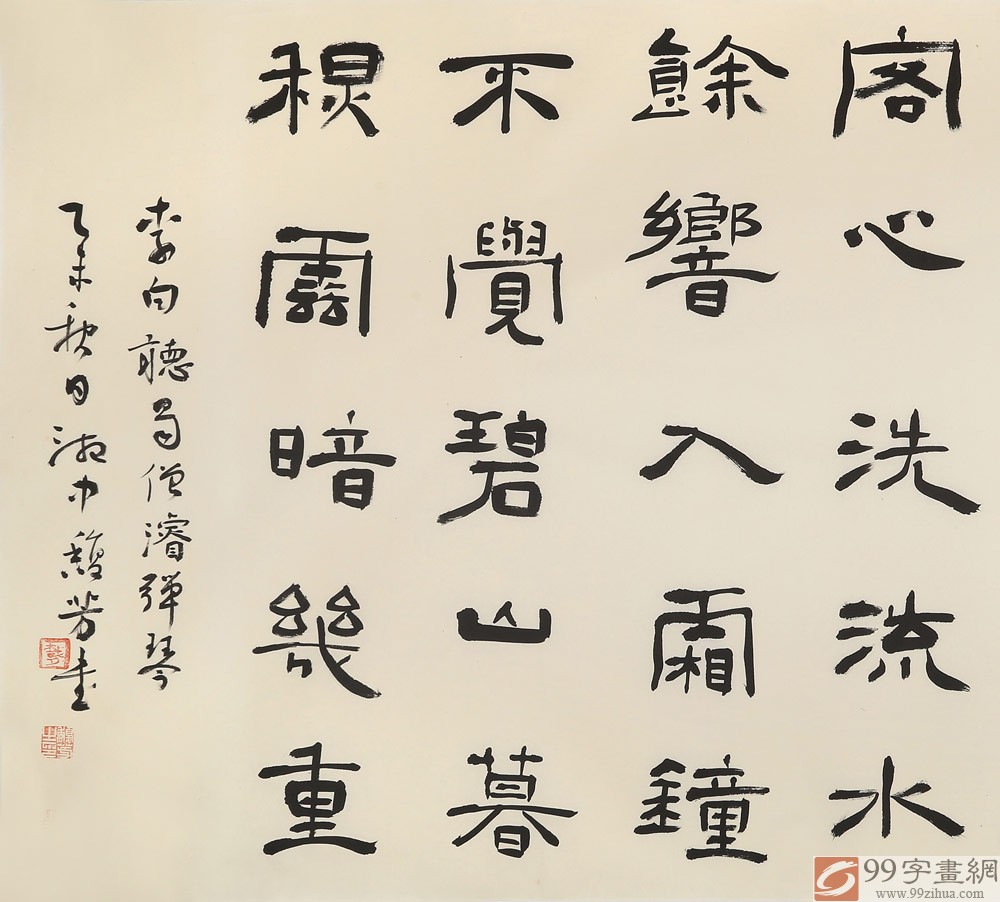 客心洗流水
餘響入霜鐘
不覺碧山暮
秋雲暗幾重
李白聽蜀僧濬彈琴
乙未秋日湘中馥芳書
99字畫網
www.99zihua.com